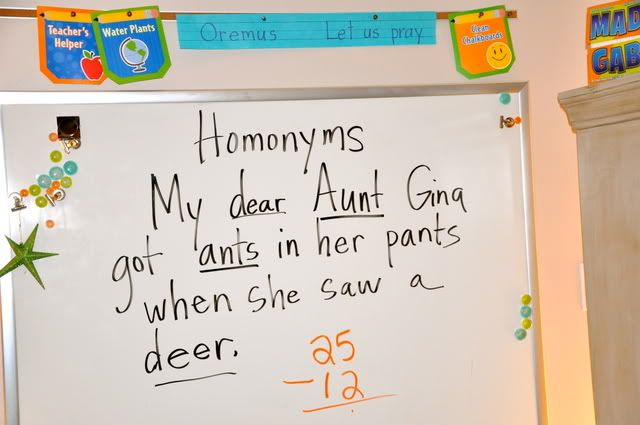 Teacher's
Helper
Water Plants
Oremus Let us pray
Clean
Chalkboards
MAD
GAB
Homonyms
My dear Aunt Gina
got ants in her pants
when she saw a
deer.
25
-12